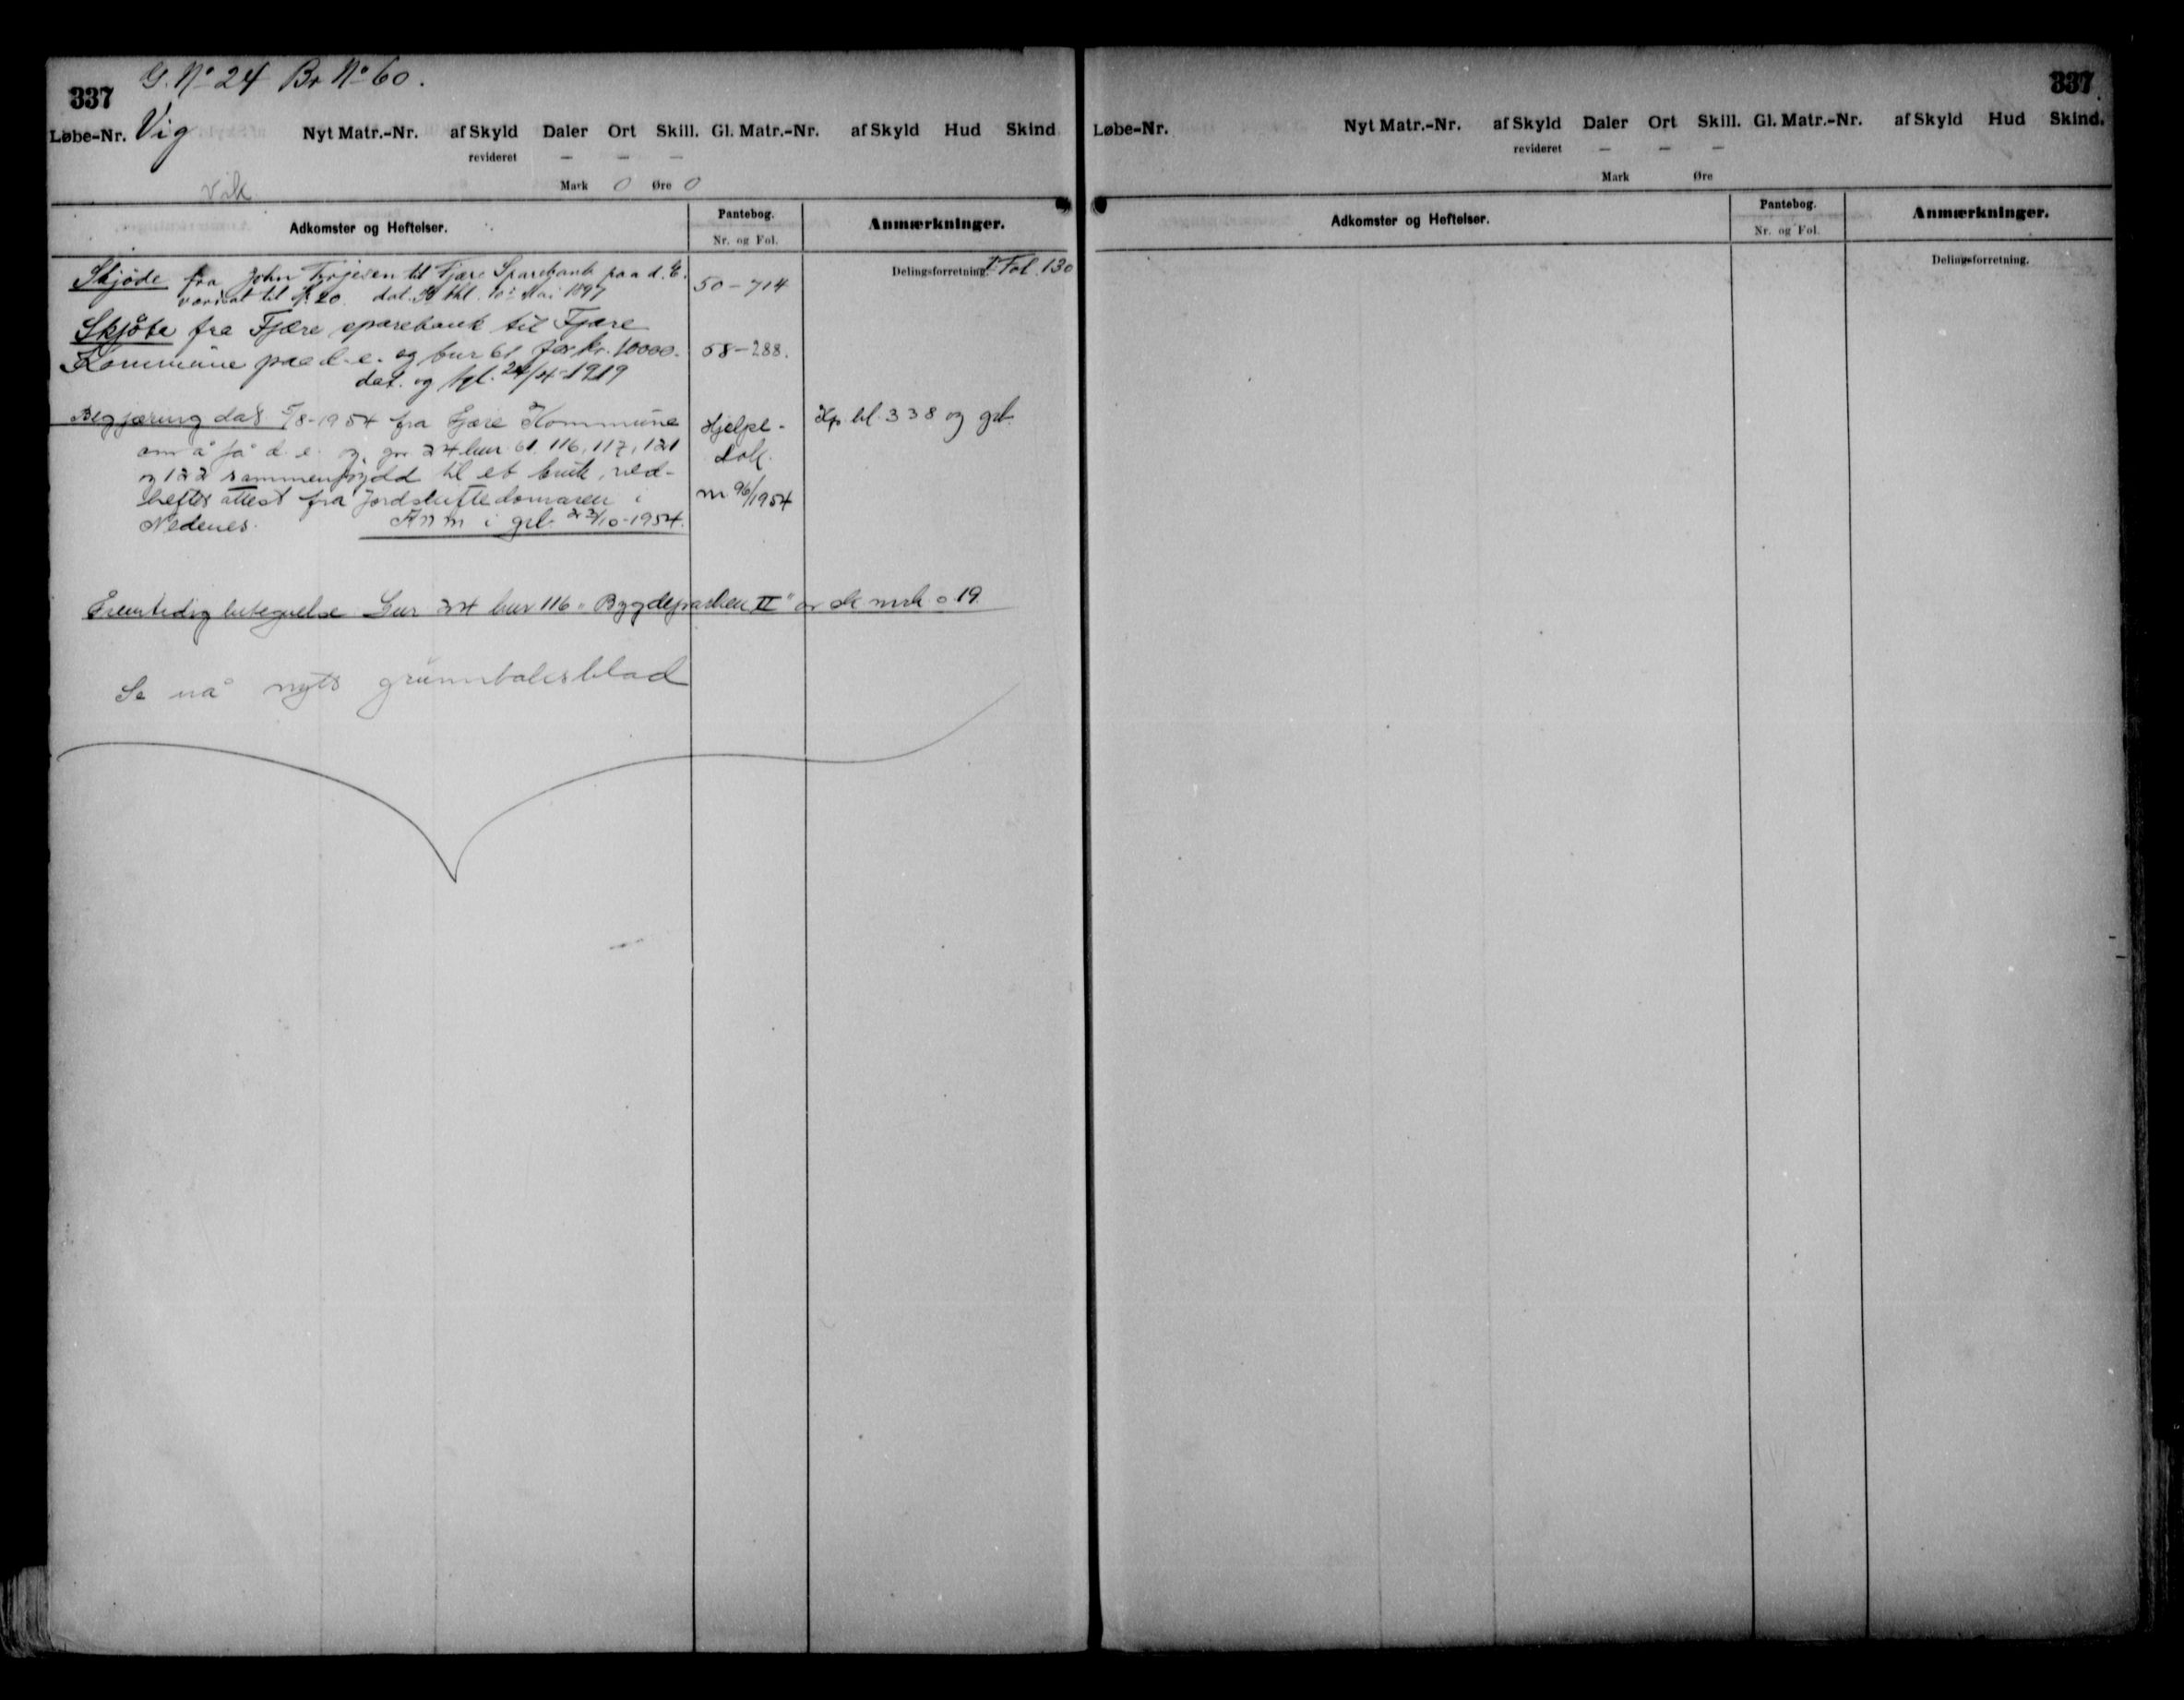 G. No 24 Br No 60.
337
Løbe-Nr. Vig Nyt Matr.-Nr. af Skyld Daler Ort Skill. Gl. Matr.-Nr. af Skyld Hud Skind
revideret — — —
Vik Mark 0 Øre 0
Adkomster og Heftelser. Pantebog. Anmærkninger.
Nr. og Fol.
Delingsforretning. I Fol. 130
Skjöde fra John til Fjære Sparebank paa d. E. 50-714
til 20. dat. Mai 1897
Skjöte fra Fjære sparebank til Fjære
Kommune paa d. e. og bnr 61 for kr. 10000. 58-288.
dat. og tgl. 24/4-1919
Begjæring dat 5/8-1954 fra Fjære Kommune Hjelpe- Kfr. bl. 338 og grb.
om å få d. e. og gnr 24 bnr. 61, 116, 117, 121 dok.
og 122 sammenføyd til et bruk, ved-
heftet attest fra Jordskiftedomaren i nr 96/1954
Nedenes. Anm i grb. 22/10-1954.
Fremtidig betegnelse Gnr 24 bnr 116 "Bygdeparken II" av sk mrk 0.19.
Se nå nytt grunnboksblad
337
Løbe-Nr. Nyt Matr.-Nr. af Skyld Daler Ort Skill. Gl. Matr.-Nr. af Skyld Hud Skind.
revideret — — —
Mark Øre
Adkomster og Heftelser. Pantebog. Anmærkninger.
Nr. og Fol.
Delingsforretning.